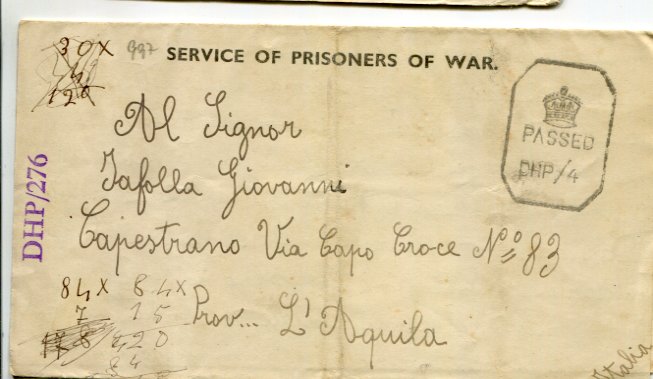 30x
997
SERVICE OF PRISONERS OF WAR.
120
PASSED
DHP/4
Al Signor
Iafolla Giovanni
Capestrano Via Capo Croce Nº 83
Prov... L'Aquila
Italia
DHP/276
84x
7
84x
15
420
84